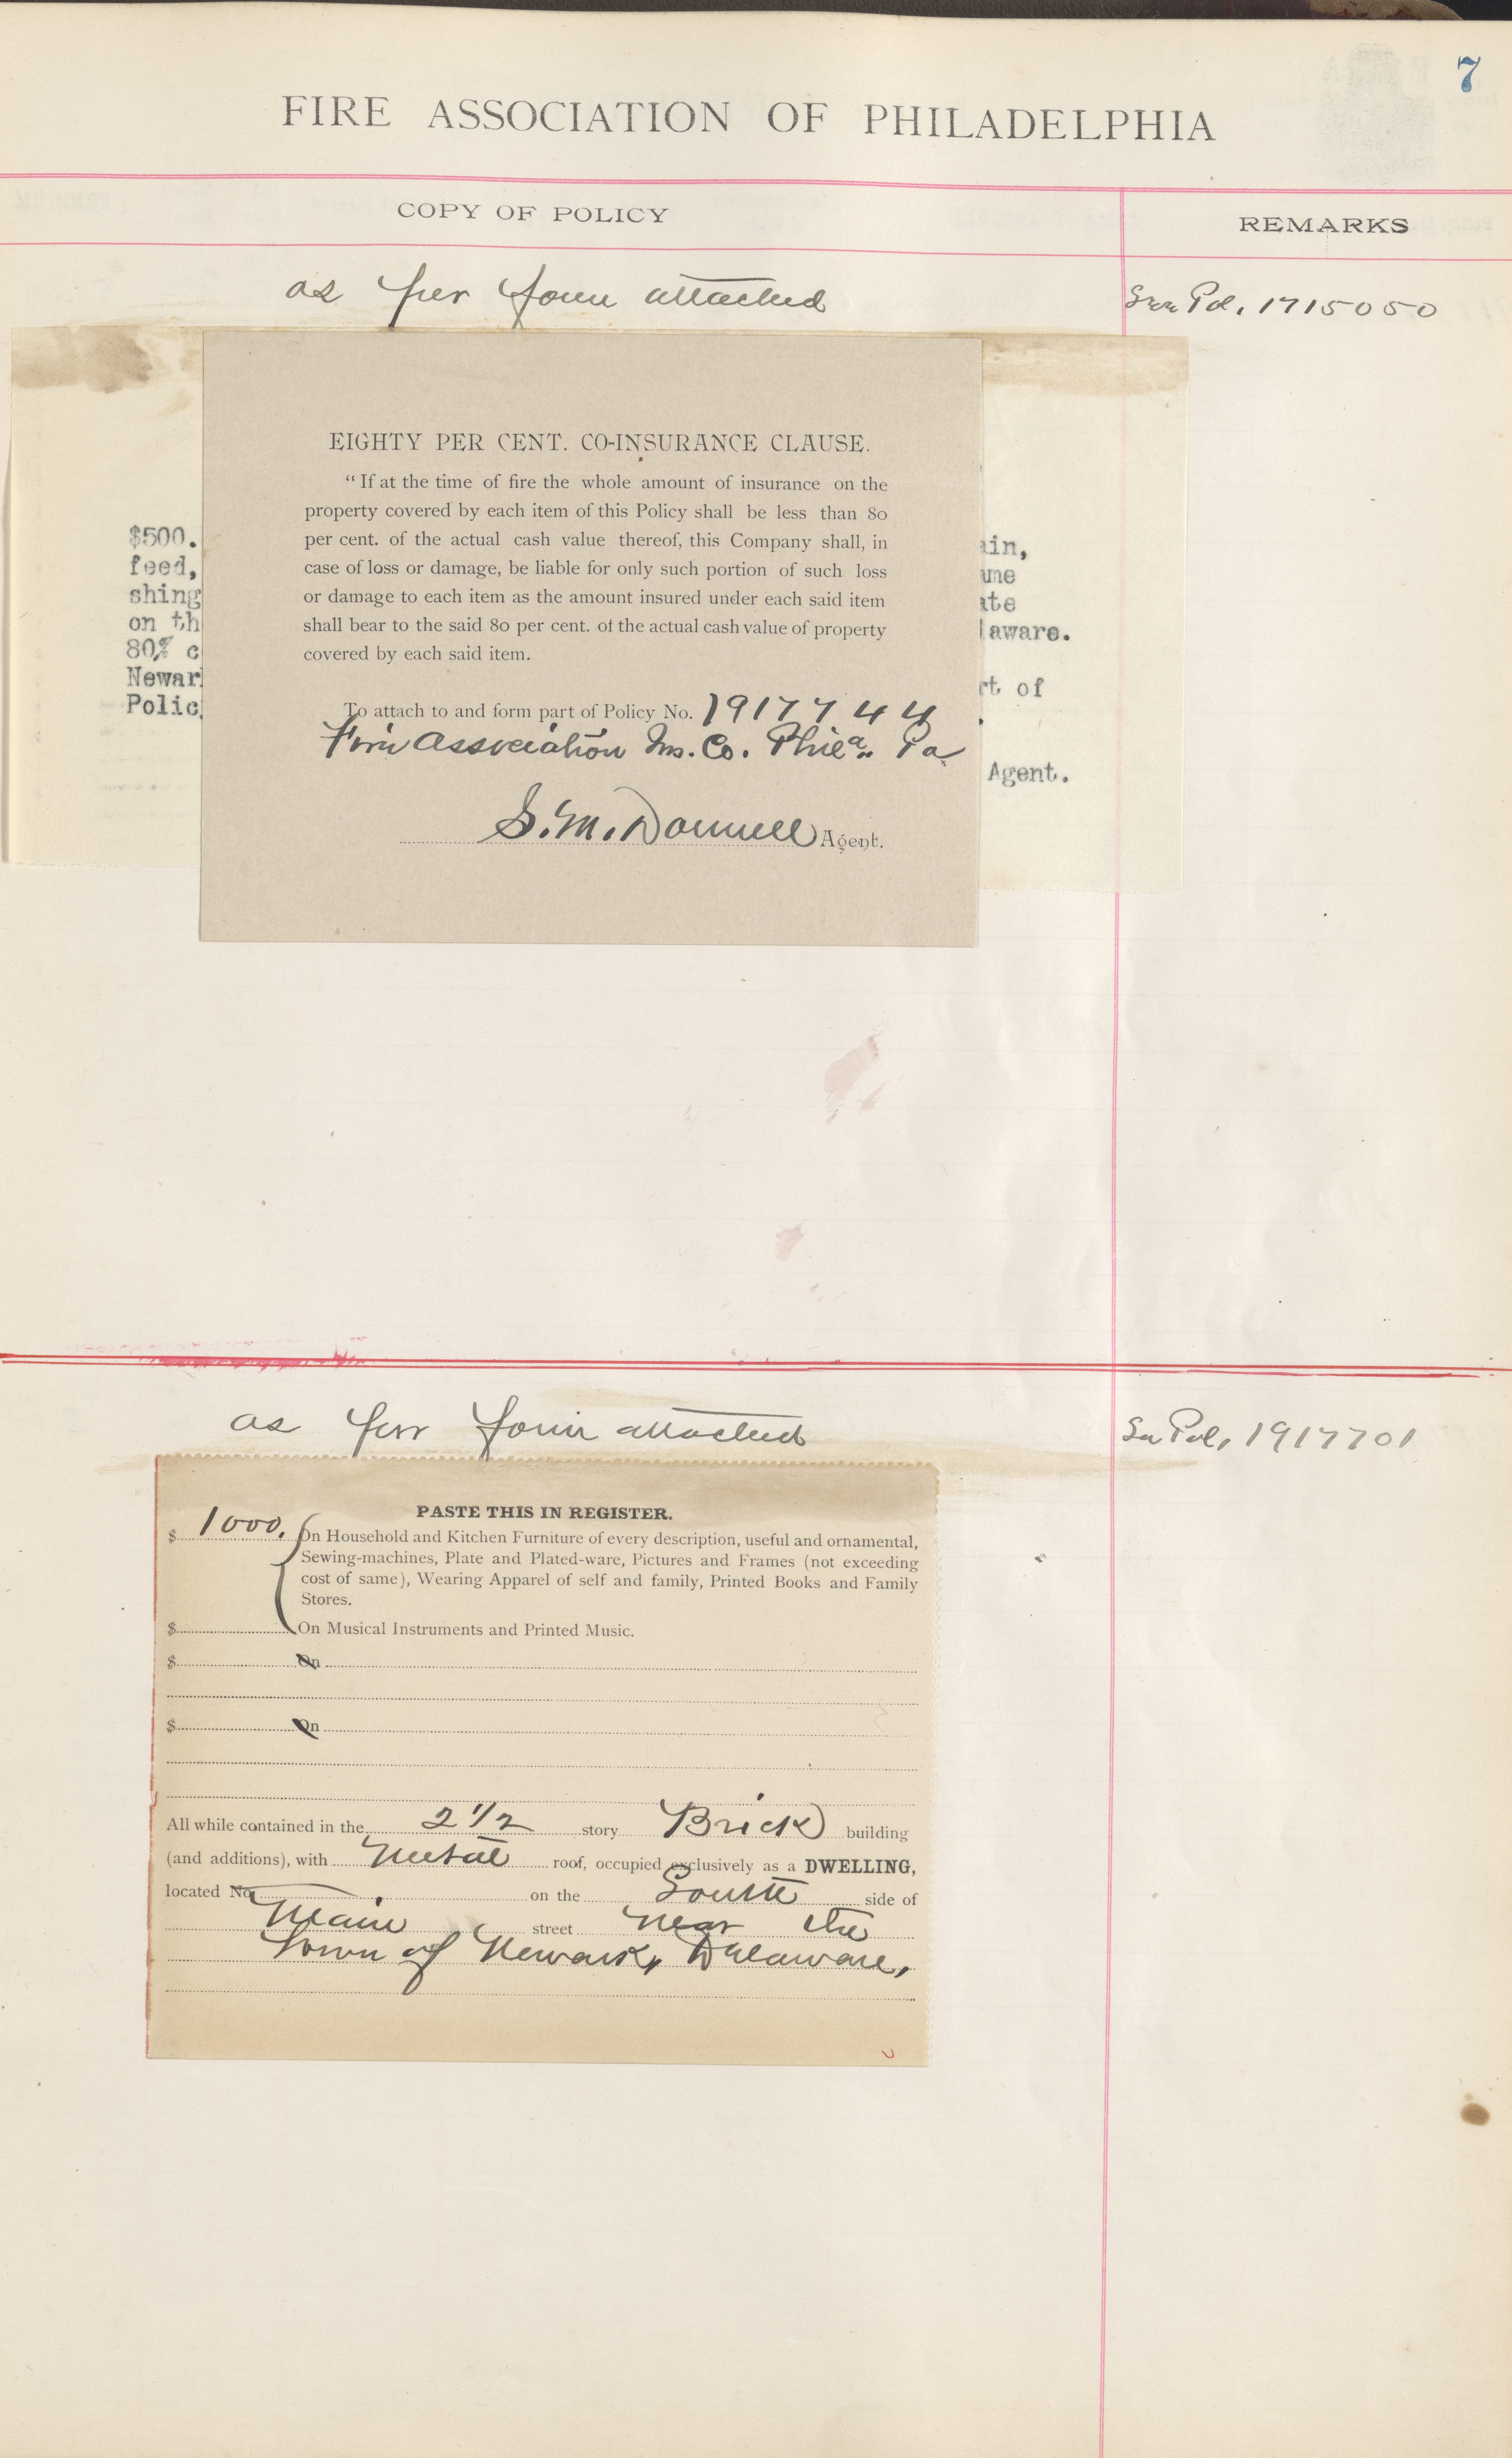 7
FIRE ASSOCIATION OF PHILADELPHIA
COPY OF POLICY
REMARKS
as per form attached
See Pol. 1715050
EIGHTY PER CENT. CO-INSURANCE CLAUSE.
“If at the time of fire the whole amount of insurance on the
property covered by each item of this Policy shall be less than 80
per cent. of the actual cash value thereof, this Company shall, in
case of loss or damage, be liable for only such portion of such loss
or damage to each item as the amount insured under each said item
shall bear to the said 80 per cent. of the actual cash value of property
covered by each said item.
To attach to and form part of Policy No. 1917744
Fire Association Ins. Co. Phila. Pa
S. M. Donnell Agent.
$500.
feed,
shing
on th
80% c
Newar
Polic
ain,
ame
ate
laware.
rt of
Agent.
as per form attached
See Pol. 1917701
PASTE THIS IN REGISTER.
$ 1000. On Household and Kitchen Furniture of every description, useful and ornamental,
Sewing-machines, Plate and Plated-ware, Pictures and Frames (not exceeding
cost of same), Wearing Apparel of self and family, Printed Books and Family
Stores.
$ On Musical Instruments and Printed Music.
$ On
$ On
All while contained in the 2 1/2 story Brick building
(and additions), with Metal roof, occupied exclusively as a DWELLING,
located No. on the South side of
Main street near the
Town of Newark, Delaware,